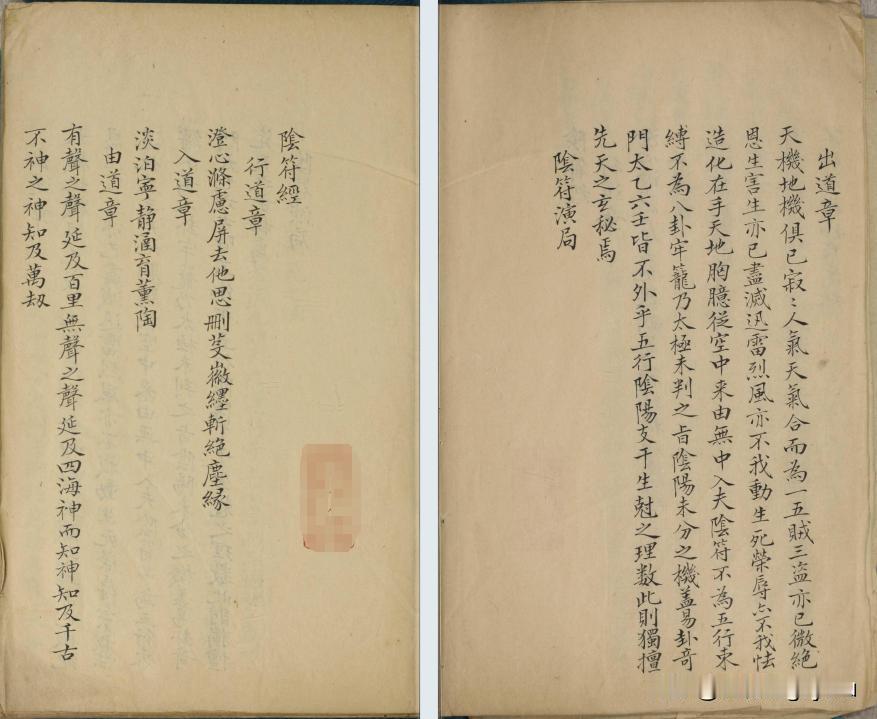 陰符經
行道章
澄心滌慮屏去他思刪芟徽纆斬絕塵緣
入道章
淡泊寧靜涵育薰陶
由道章
有聲之聲延及百里無聲之聲延及四海神而知神知及千古
不神之神知及萬劫
出道章
天機地機俱已寂〻人氣天氣合而為一五賊三盜亦已微絕
恩生害生亦已盡滅迅雷烈風亦不我動生死榮辱亦不我怯
造化在手天地胸臆從空中来由無中入夫陰符不為五行束
縛不為八卦牢籠乃太極未判之旨陰陽未分之機蓋易卦奇
門太乙六壬皆不外乎五行陰陽支干生尅之理数此則獨擅
先天之玄秘焉
陰符演局